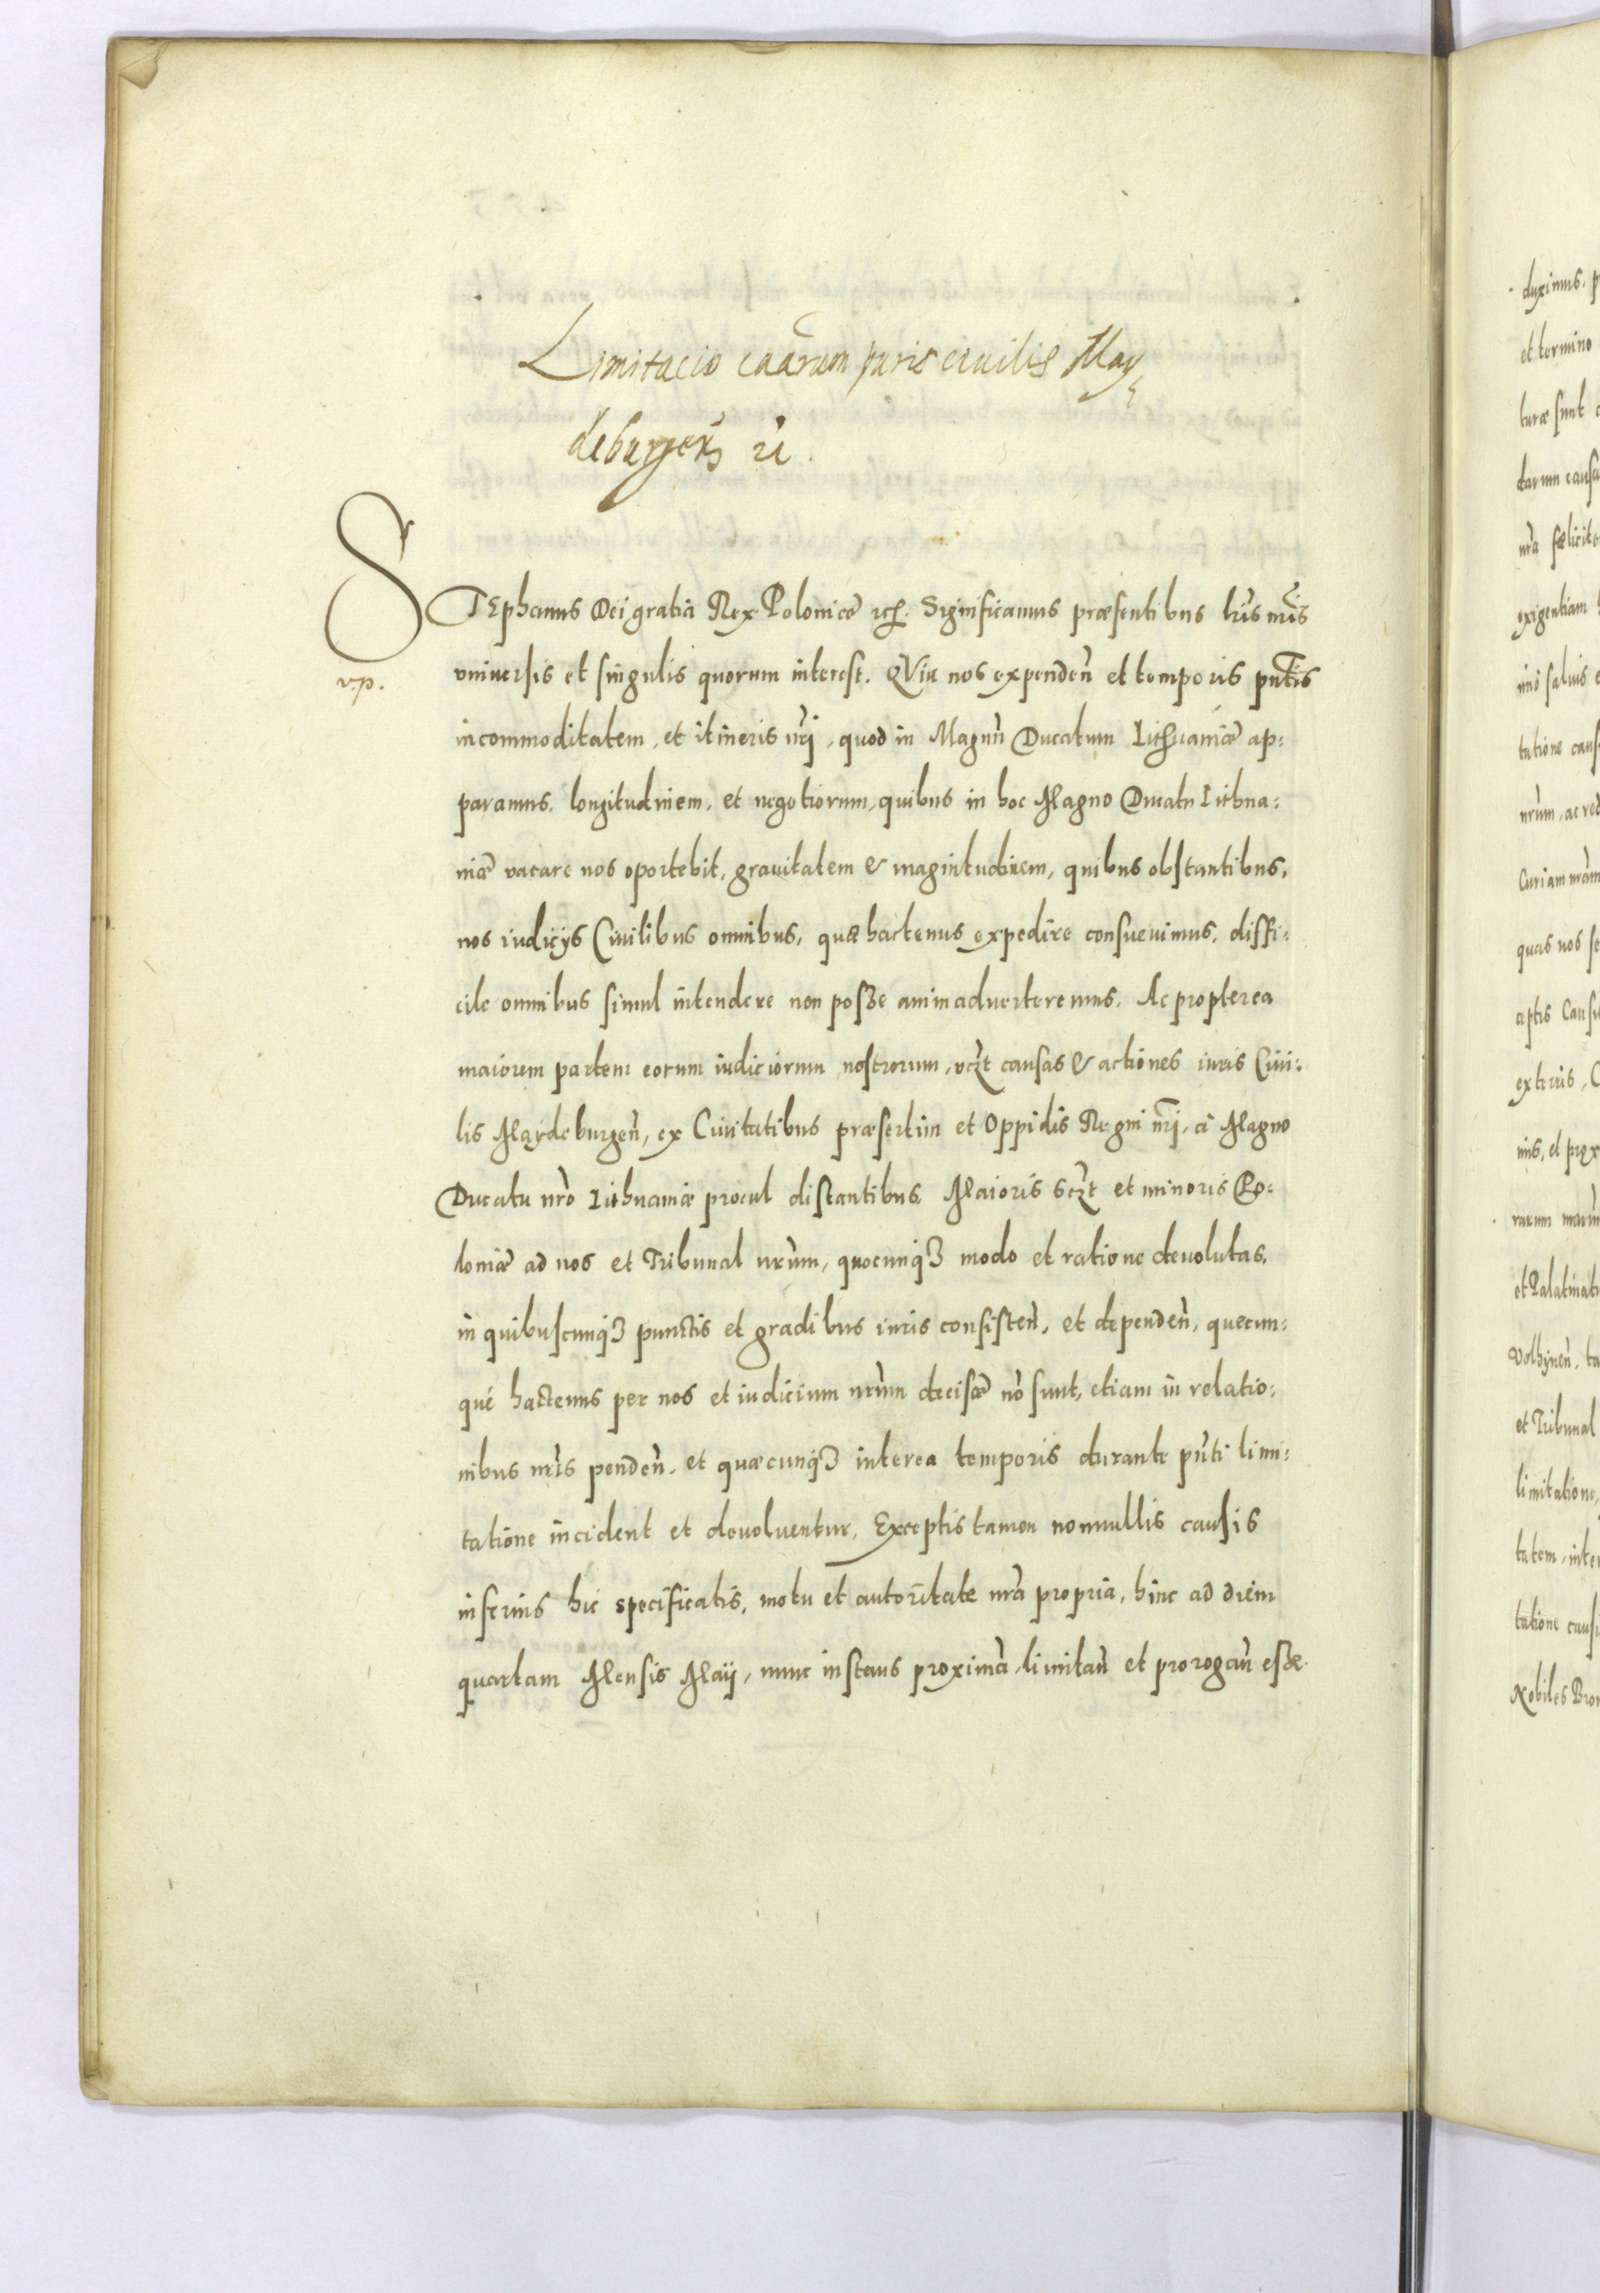 Limitacio caãrum juris ciuilis May
deburgeñ ꝛc.
STEphanus Dei gratia Rex Poloniæ ꝛcꝭ. Significamus præsentibus lr̃is nr̃is
v.p.
vniuersis et singulis quorum interest. QVia nos expendeñ et temporis pñtis
incommoditatem, et itineris nr̃i, quod in Magnũ Ducatum Lithuaniæ ap:
paramus, longitudinem, et negotiorum, quibus in hoc Magno Ducatu Lithua:
niæ vacare nos oportebit, grauitatem & magnitudinem, quibus obstantibus,
nos iudicijs Ciuilibus omnibus, quæ hactenus expedire consueuimus, diffi:
cile omnibus simul intendere non posse animaduerteremus. Ac propterea
maiorem partem eorum iudiciorum nostrorum, vczt causas & actiones iuris Ciui:
lis Maydeburgeñ, ex Ciuitatibus præsertim et Oppidis Regni nr̃i, à Magno
Ducatu nr̃o Lithuaniæ procul distantibus Maioris sczt et minoris Po:
loniæ ad nos et Tribunal nr̃um, quocunqꝫ modo et ratione deuolutas,
in quibuscunqꝫ punctis et gradibus iuris consisteñ, et dependeñ, quecun:
qué hactenus per nos et iudicium nr̃um decisæ nõ sunt, etiam in relatio:
nibus nr̃is pendeñ, et quæcunqꝫ interea temporis durante pñti limi:
tatione incident et deuoluentur, Exceptis tamen nonnullis causis
inferius hic specificatis, motu et autoritate nr̃a propria, hinc ad diem
quartam Mensis Maij, nunc instans proximã, limitañ et prorogañ esse
duximus, p
et termino
turæ sunt
darum causa
nr̃a fælicite
exigentiam
nino saluis e
tatione caus
nr̃um, ac red
Curiam nr̃am
quas nos se
aptis Causi
exteris, C
nis, et prox
rarum
et Palatinat
Volhyneñ, ta
et Tribunal
limitatione,
tatem, inter
tatione causi
Nobiles Bro